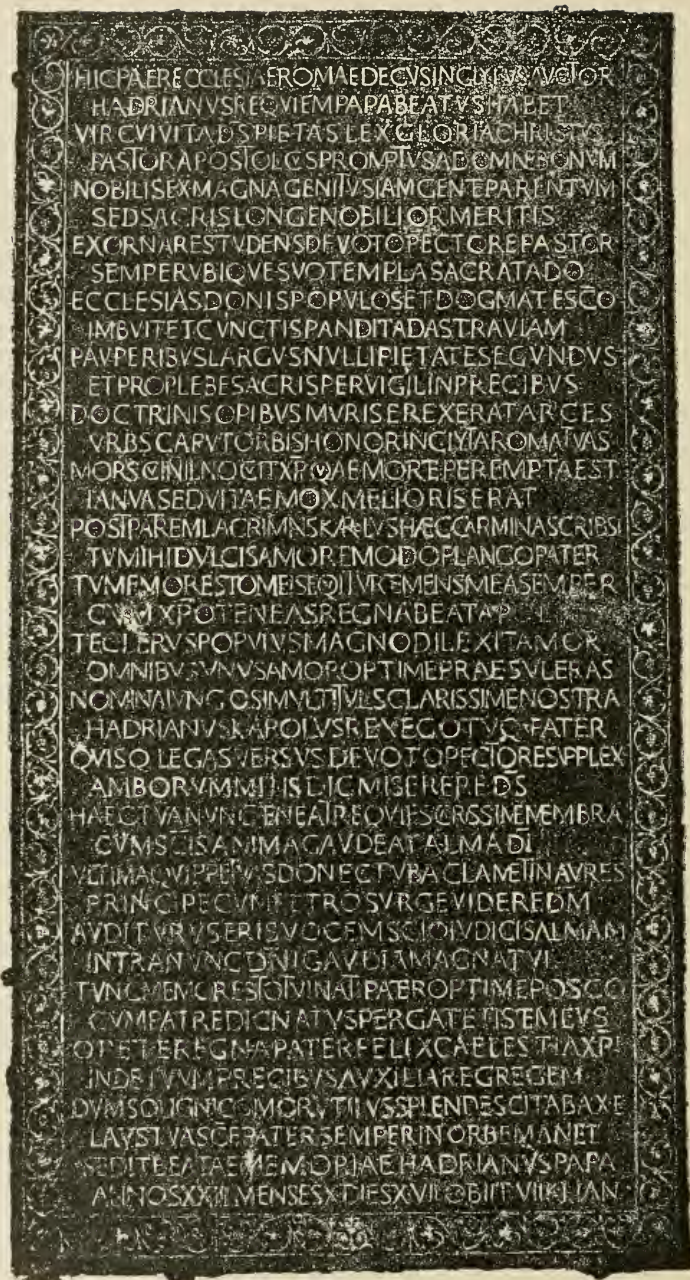 HIC PATER ECCLESIAE ROMAE DECVS INCLYTVS AVCTOR
HADRIANVS REQVIEM PAPA BEATVS HABET
VIR CVI VITA DS PIETAS LEX GLORIA CHRISTVS
PASTOR APOSTOLICVS PROMPTVS AD OMNE BONVM
NOBILIS EX MAGNA GENITVS IAM GENTE PARENTVM
SED SACRIS LONGE NOBILIOR MERITIS
EXORNARE STVDENS DEVOTO PECTORE PASTOR
SEMPER VBIQVE SVO TEMPLA SACRATA DO
ECCLESIAS DONIS POPVLOS ET DOGMATE SCO
IMBVIT ET CVNCTIS PANDIT AD ASTRA VIAM
PAVPERIBVS LARGVS NVLLI PIETATE SECVNDVS
ET PRO PLEBE SACRIS PERVIGIL IN PRECIBVS
DOCTRINIS OPIBVS MVRIS EREXERAT ARCES
VRBS CAPVT ORBIS HONOR INCLYTA ROMA TVAS
MORS CVI NIL NOCVIT XPI QVAE MORTE PEREMPTA EST
IANVA SED VITAE MOX MELIORIS ERAT
POST PATREM LACRIMANS KAROLVS HAEC CARMINA SCRIBSI
TV MIHI DVLCIS AMOR TE MODO PLANGO PATER
TV MEMOR ESTO MEI SEQVITVR TE MENS MEA SEMPER
CVM XPO TENEAS REGNA BEATA
TE CLERVS POPVLVS MAGNO DILEXIT AMORE
OMNIBVS VNVS AMOR OPTIME PRAESVL ERAS
NOMINA IVNGO SIMVL TITVLIS CLARISSIME NOSTRA
HADRIANVS KAROLVS REX EGO TVQ PATER
QVISQ LEGAS VERSVS DEVOTO PECTORE SVPPLEX
AMBORVM MITIS DIC MISERERE DS
HAEC TVA NVNC TENEAT REQVIES CRISSIME MEMBRA
CVM SCIS ANIMA GAVDEAT ALMA DI
VLTIMA QVIPPE TVAS DONEC TVBA CLAMET IN AVRES
PRINCIPE CVM PETRO SVRGE VIDERE DM
AVDITVRVS ERIS VOCEM SCIO IVDICIS ALMAM
INTRA NVNC DNI GAVDIA MAGNA TVI
TVNC MEMOR ESTO TVI NATI PATER OPTIME POSCO
CVM PATRE DIC NATVS PERGAT ET ISTE MEVS
O PETE REGNA PATER FELIX CAELESTIA XPI
INDE TVVM PRECIBVS AVXILIARE GREGEM
DVM SOL IGNICOMO RVTILVS SPLENDESCIT AB AXE
LAVS TVA SCE PATER SEMPER IN ORBE MANET
SEDIT BEATAE MEMORIAE HADRIANVS PAPA
ANNOS XXIII MENSES X DIES XVII OBIIT VII KL IAN